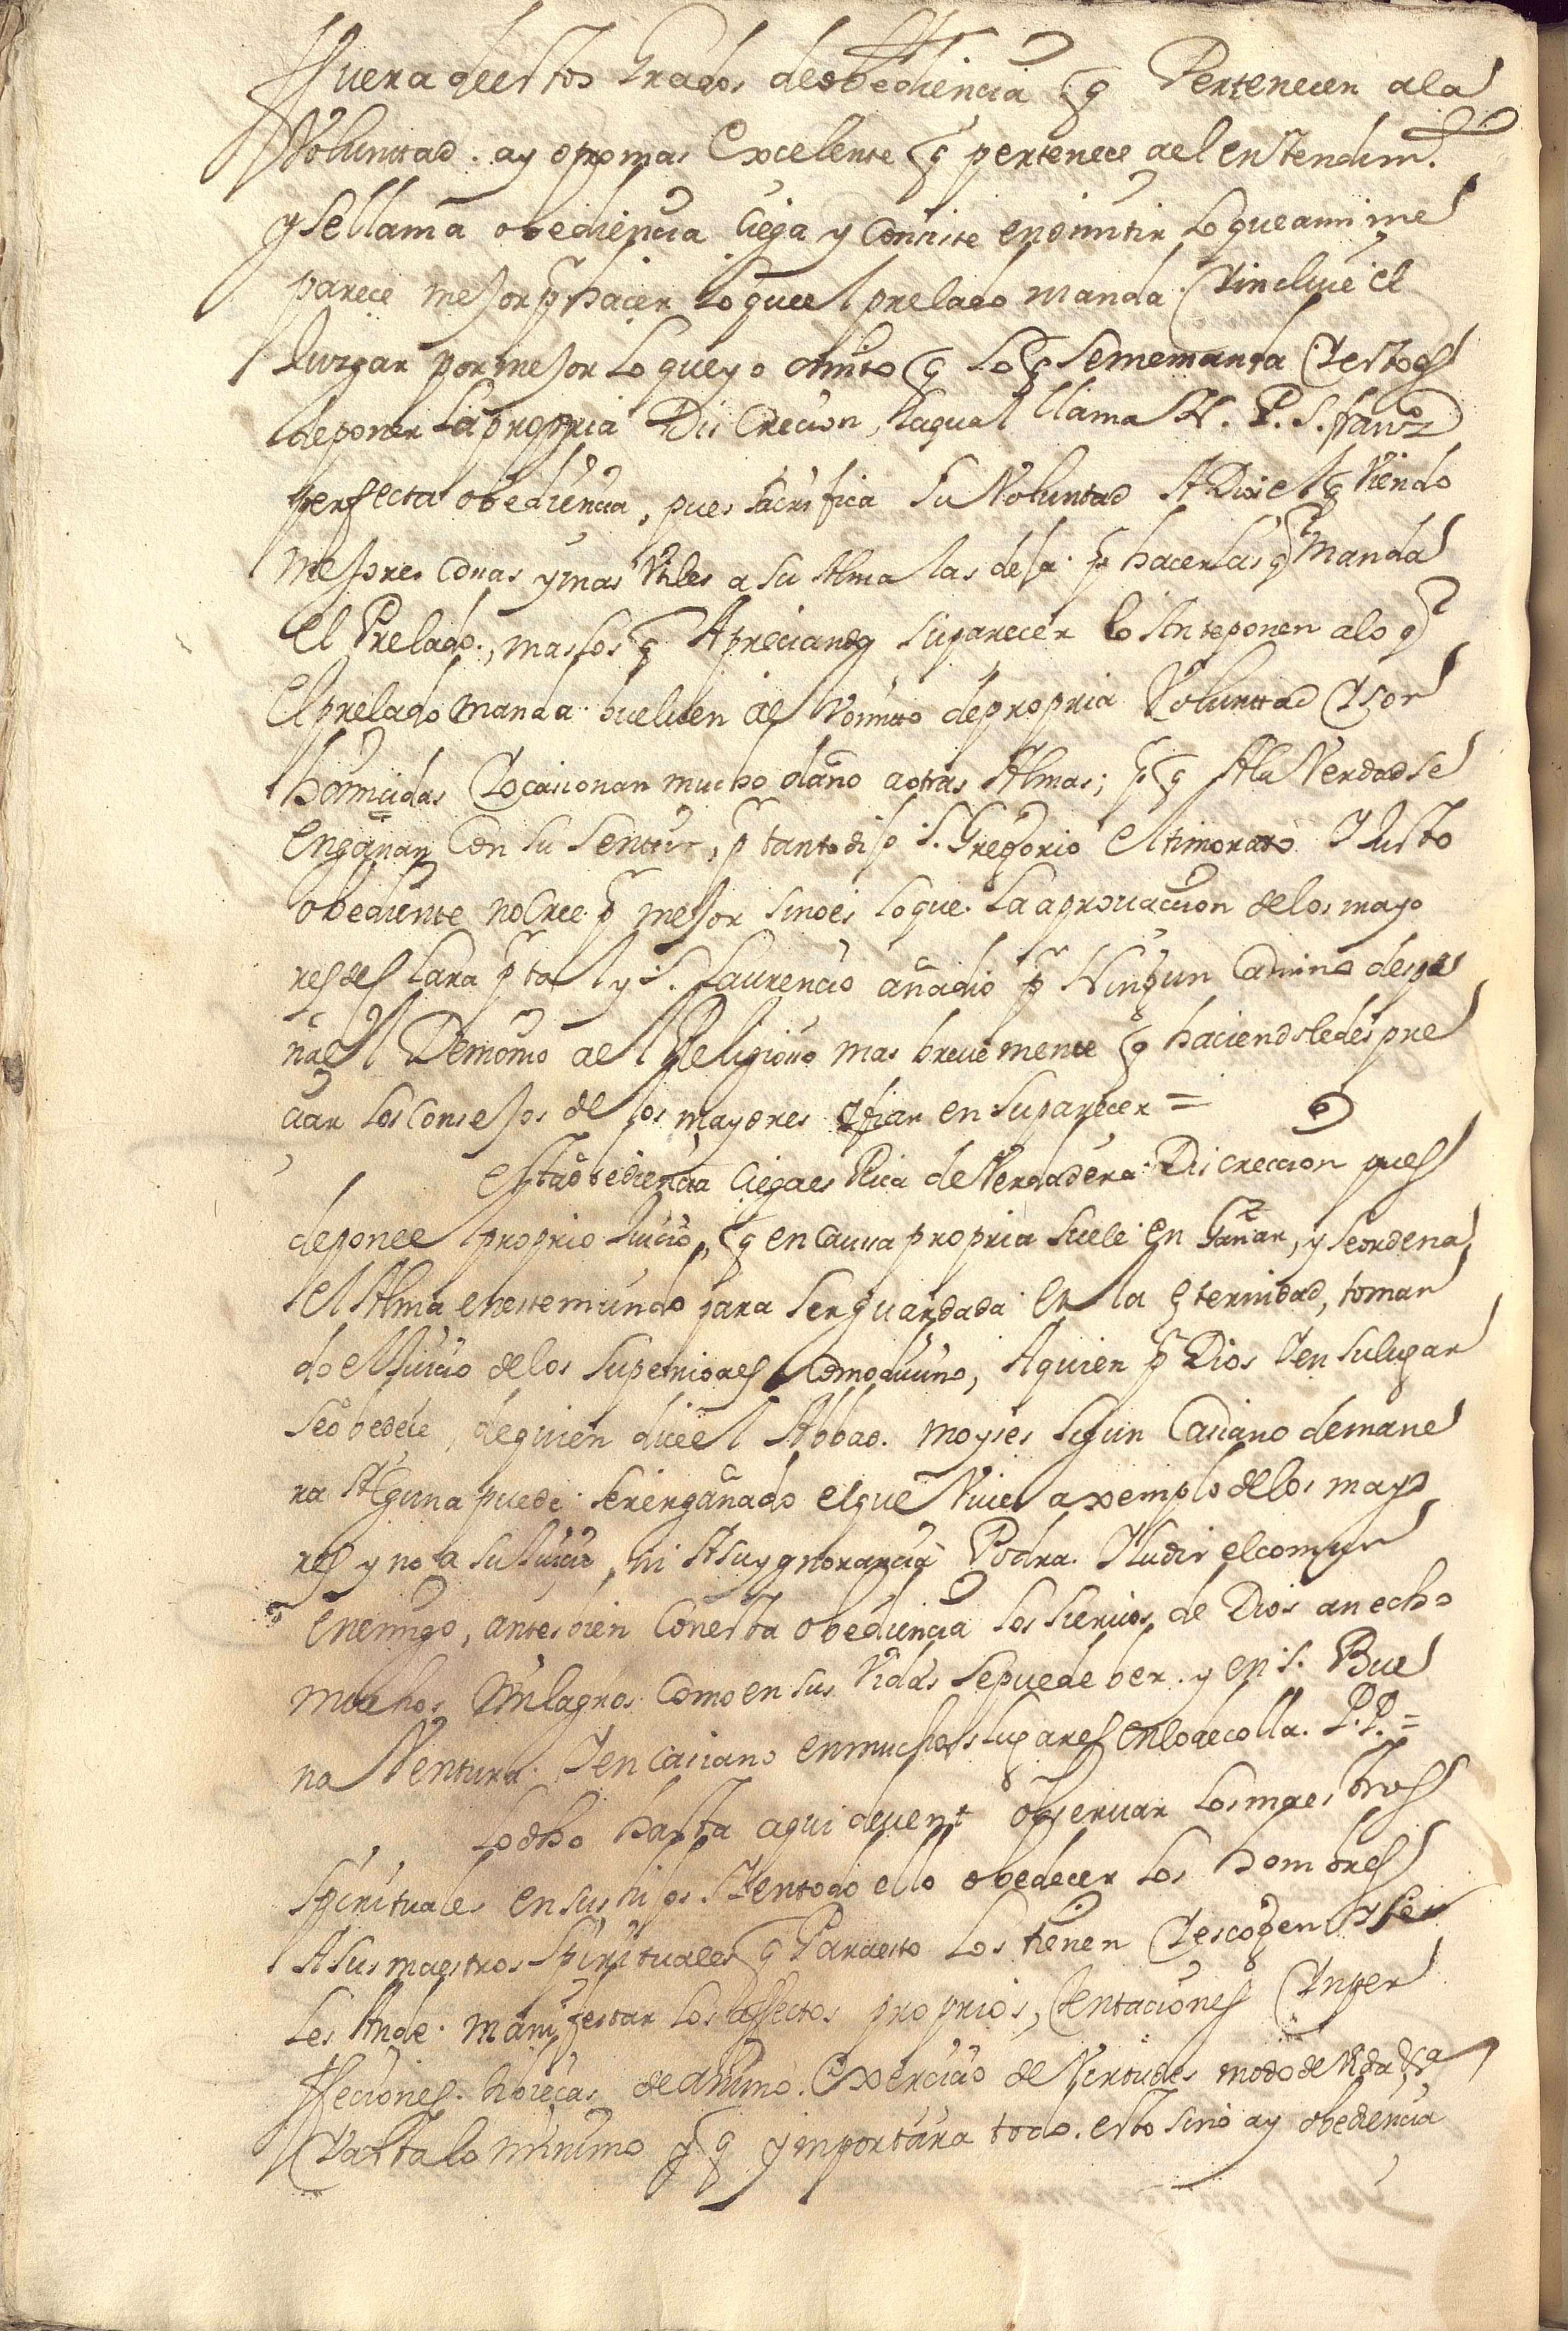 Fuera deestos Grados de obediencia q̃ Pertenecen ala
Voluntad. ay otro mas Excelente q̃ pertenece ael entendim.to
y se llama obediencia Ciega y Consiste en omitir Lo que a mi me
parece mejor p.a hacer Lo que el prelado manda Y incluie el
Juzgar por mejor Lo que yo omito q̃ Lo q̃ se me manda Y esto es
deponer La propria Discrecion, la qual llama N. P. S. Fran.co
perfecta obediencia, pues sacrifica su Voluntad A Dios el q̃ Viendo
mejores cosas y mas Vtiles a su Alma las deja p.r hacer las q̃ Manda
El Prelado., mas los q̃ Apreciando su parecer lo Anteponen alo q̃
El prelado Manda buelben al Vomito de propria Voluntad Y son
homicidas Y ocasionan mucho daño a otras Almas; p.r q̃ A la Verdad se
engañan Con su sentir, p.r tanto dijo S. Gregorio El timorato Y Justo
obediente no Cree p.r mejor sino es lo que La aprouacion de los mayo
res declara p.r tal y S. Laurencio añadio p.r Ningun Camino despe
ña el Demonio ael Religioso mas breuemente q̃ haciendole despre
ciar Los Consejos de los mayores Y fiar en su parecer =
esta obediencia Ciega es Rica de Verdadera Discreccion pues
depone el proprio Juicio, q̃ en causa propria suele en Gañar, y se ordena
el Alma en este mundo para ser guardada en la Eternidad, toman
do el Juicio de los superiores Como diuino, A quien p.r Dios Y en su lugar
se obedece, de quien dice el Abbad. Moyses segun Casiano de mane
ra Alguna puede ser engañado el que Viue a exemplo de los mayo
res y no a su Juicio, ni A su ygnorancia Podra. Yludir el comun
enemigo, antes bien Con esta obediencia Los sieruos de Dios an echo
muchos Milagros Como en sus Vidas se puede ber. y en S. Bue
na Ventura. Y en Casiano en muchos lugares en lo de colla. P.P. =
Lo dho hasta aqui deuen observar Los maestros
Spirituales en sus hijos. Y en todo ello obedecer Los hombres
A sus maestros Spirituales q̃ Para esto Los tienen Y escogen Y se
Les Ande. Manifestar Los Affectos proprios, tentaciones Y Imper
fecciones. de animo. Exercicio de Virtudes modo de Vida
Y asta lo minimo p.r q̃ ymportara todo. esto sino ay obediencia